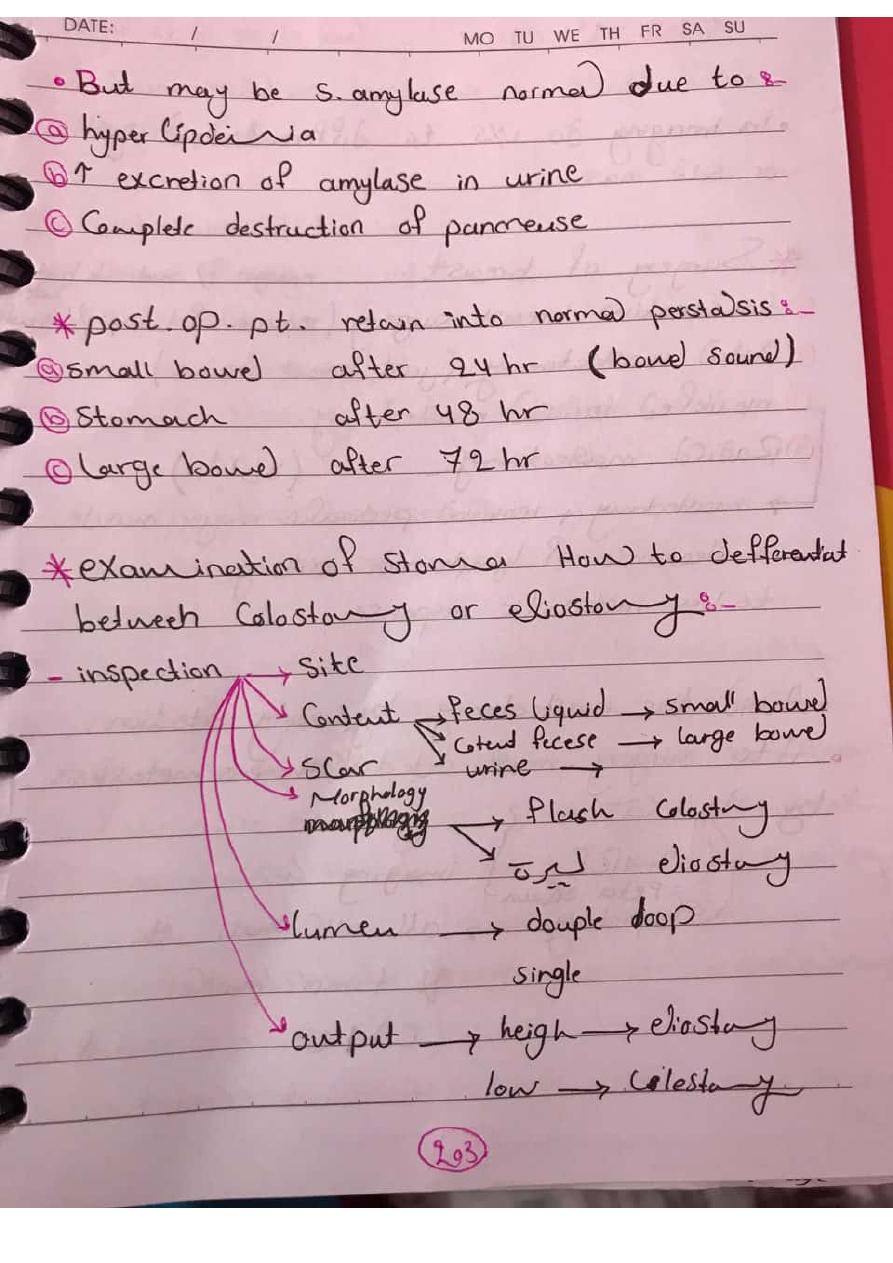 DATE: / /
MO TU WE TH FR SA SU
• But may be s. amylase normal due to :-
ⓐ hyper lipdeimia
ⓑ ↑ excretion of amylase in urine
ⓒ Complete destruction of pancreuse
* post. op. pt. retain into normal perstalsis :-
ⓐ small bowel after 24 hr (bowel sound)
ⓑ Stomach after 48 hr
ⓒ large bowel after 72 hr
* examination of stoma How to defferentiat
between Colostomy or eliostomy :-
- inspection → Site
Content → feces liquid → small bowel
fecese → large bowel
urine →
Scar
Morphology
→ flash Colostomy
eliostomy
lumen → douple loop
single
output → heigh → eliostomy
low → Colestomy
203